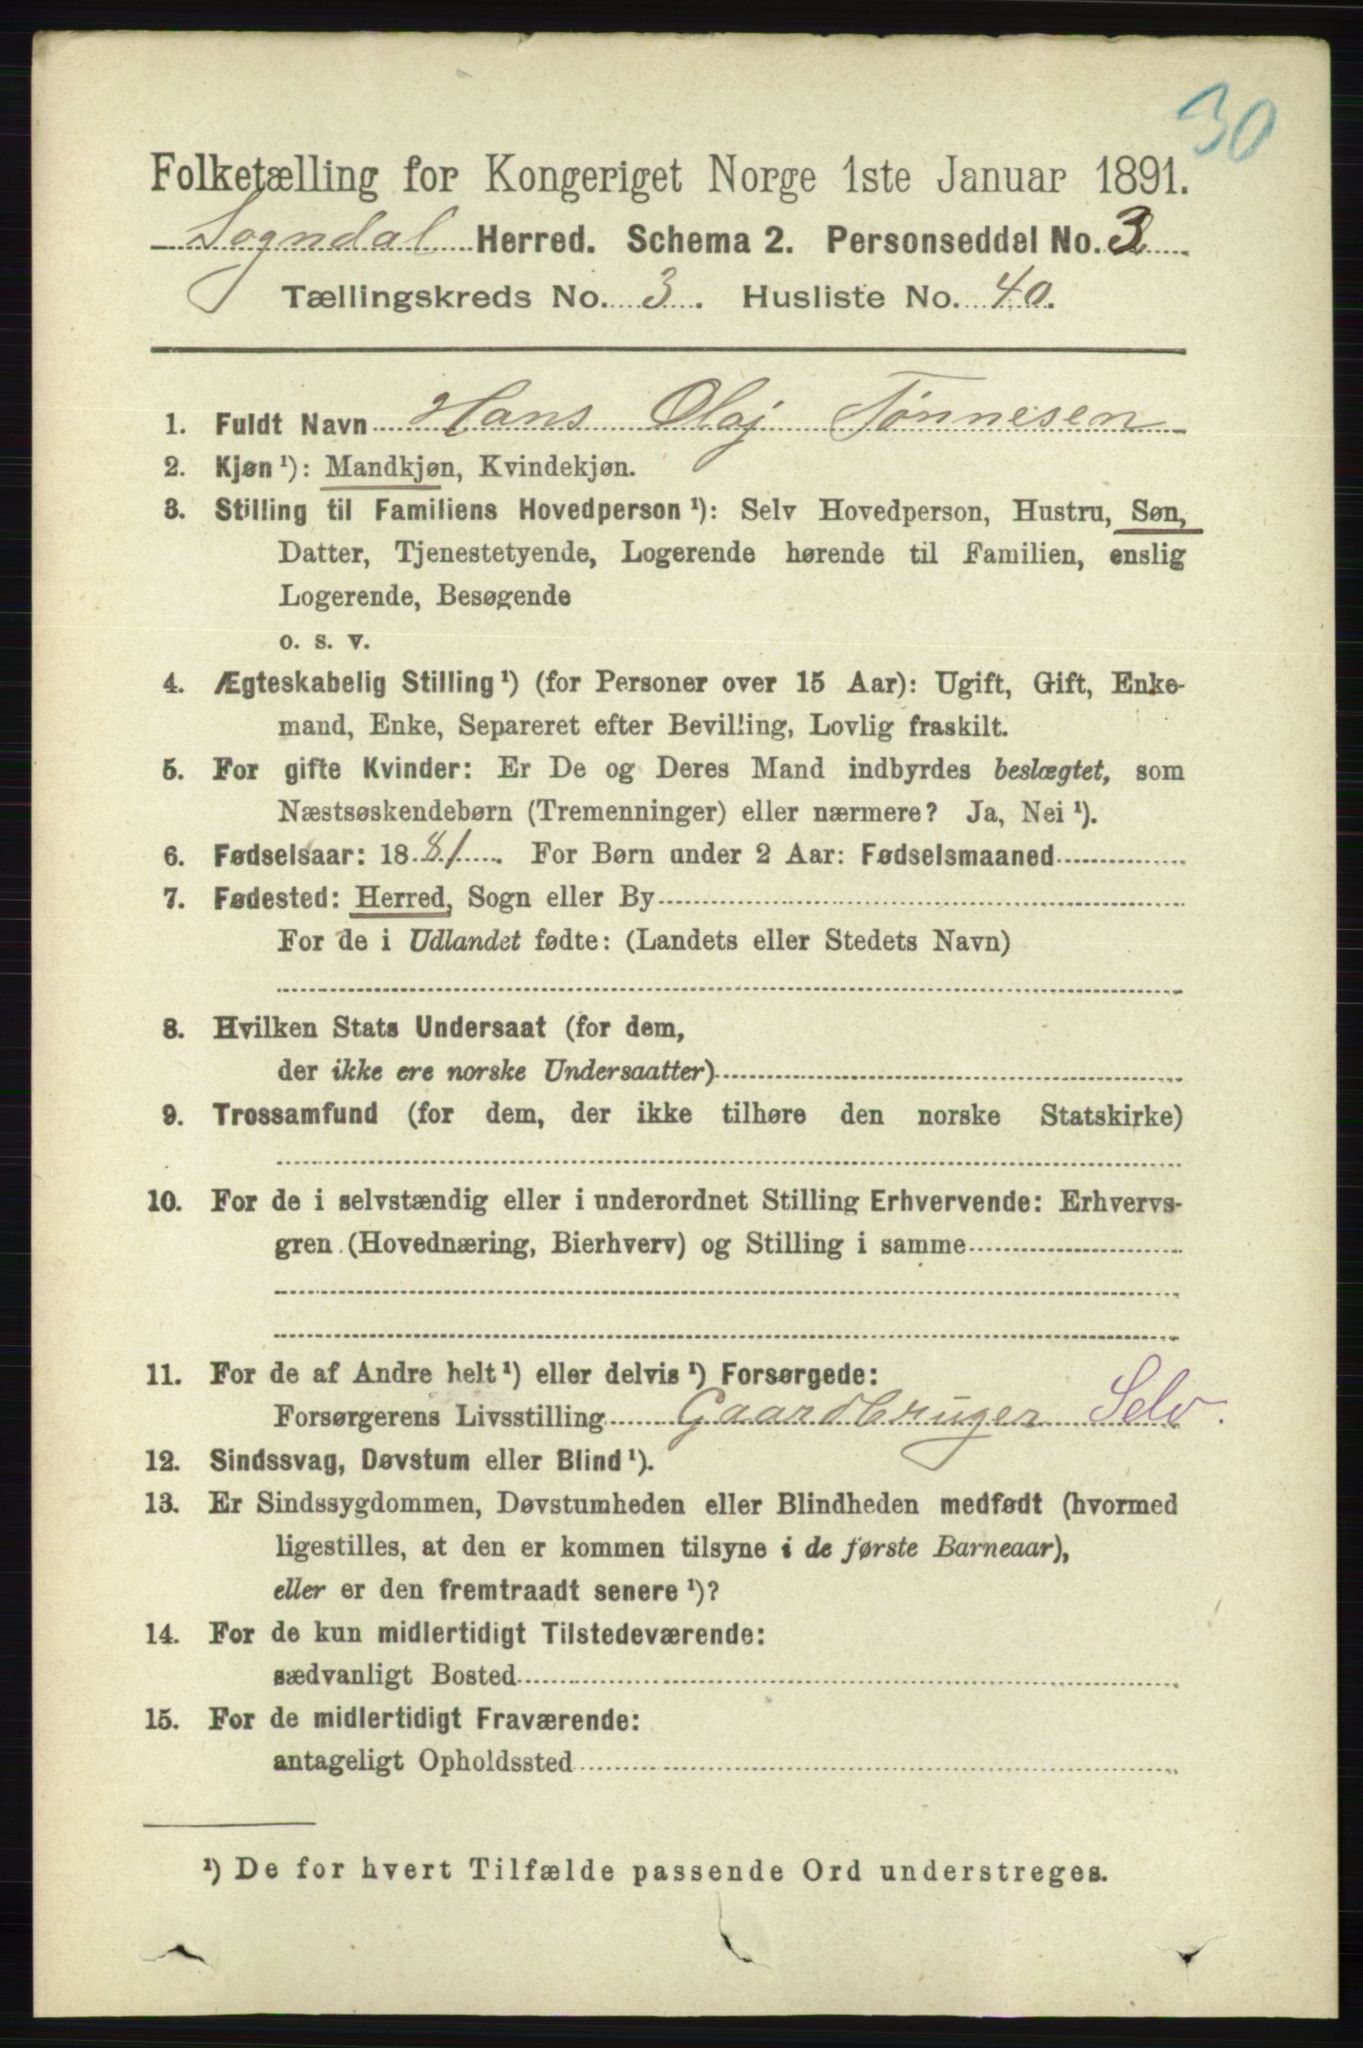 30
Folketælling for Kongeriget Norge 1ste Januar 1891.
Sogndal Herred. Schema 2. Personseddel No. 3
Tællingskreds No. 3. Husliste No. 40.
1. Fuldt Navn Hans Olaj Tönnesen
2. Kjøn ¹): Mandkjøn, Kvindekjøn.
3. Stilling til Familiens Hovedperson ¹): Selv Hovedperson, Hustru, Søn,
Datter, Tjenestetyende, Logerende hørende til Familien, enslig
Logerende, Besøgende
o. s. v.
4. Ægteskabelig Stilling ¹) (for Personer over 15 Aar): Ugift, Gift, Enke-
mand, Enke, Separeret efter Bevilling, Lovlig fraskilt.
5. For gifte Kvinder: Er De og Deres Mand indbyrdes beslægtet, som
Næstsøskendebørn (Tremenninger) eller nærmere? Ja, Nei ¹).
6. Fødselsaar: 1881. For Børn under 2 Aar: Fødselsmaaned
7. Fødested: Herred, Sogn eller By
For de i Udlandet fødte: (Landets eller Stedets Navn)
8. Hvilken Stats Undersaat (for dem,
der ikke ere norske Undersaatter)
9. Trossamfund (for dem, der ikke tilhøre den norske Statskirke)
10. For de i selvstændig eller i underordnet Stilling Erhvervende: Erhvervs-
gren (Hovednæring, Bierhverv) og Stilling i samme
11. For de af Andre helt ¹) eller delvis ¹) Forsørgede:
Forsørgerens Livsstilling Gaardbruger Selv.
12. Sindssvag, Døvstum eller Blind ¹).
13. Er Sindssygdommen, Døvstumheden eller Blindheden medfødt (hvormed
ligestilles, at den er kommen tilsyne i de første Barneaar),
eller er den fremtraadt senere ¹)?
14. For de kun midlertidigt Tilstedeværende:
sædvanligt Bosted
15. For de midlertidigt Fraværende:
antageligt Opholdssted
¹) De for hvert Tilfælde passende Ord understreges.